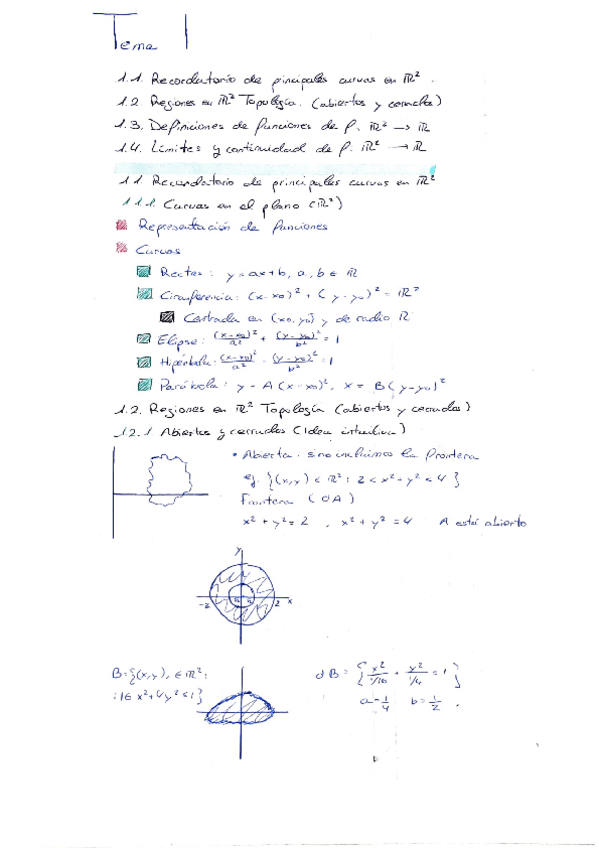 Tema 1
1.1. Recordatorio de principales curvas en ℝ².
1.2. Regiones en ℝ² Topología. (abiertos y cerrados)
1.3. Definiciones de funciones de f. ℝ² → ℝ
1.4. Límites y continuidad de f. ℝ² → ℝ
1.1. Recordatorio de principales curvas en ℝ²
1.1.1. Curvas en el plano (ℝ²)
Representación de funciones
Curvas
Rectas: y = ax+b, a, b ∈ ℝ
Circunferencia: (x-x₀)² + (y-y₀)² = ℝ²
Centrada en (x₀, y₀) y de radio R
Elipse: (x-x₀)²/a² + (y-y₀)²/b² = 1
Hipérbola: (x-x₀)²/a² - (y-y₀)²/b² = 1
Parábola: y - A(x-x₀)², x = B(y-y₀)²
1.2. Regiones en ℝ² Topología (abiertos y cerrados)
1.2.1 Abiertos y cerrados (Idea intuitiva)
• Abierta: si no incluimos la frontera
ej. {(x,y) ∈ ℝ²: 2 < x²+y² < 4}
Frontera (∂A)
x²+y²=2, x²+y²=4 A está abierto
y
-2 2 x
B={(x,y), ∈ ℝ²: ∂B = { x²/1/16 + y²/1/4 = 1 }
:16x²+4y²≤1} a=1/4 b=1/2.